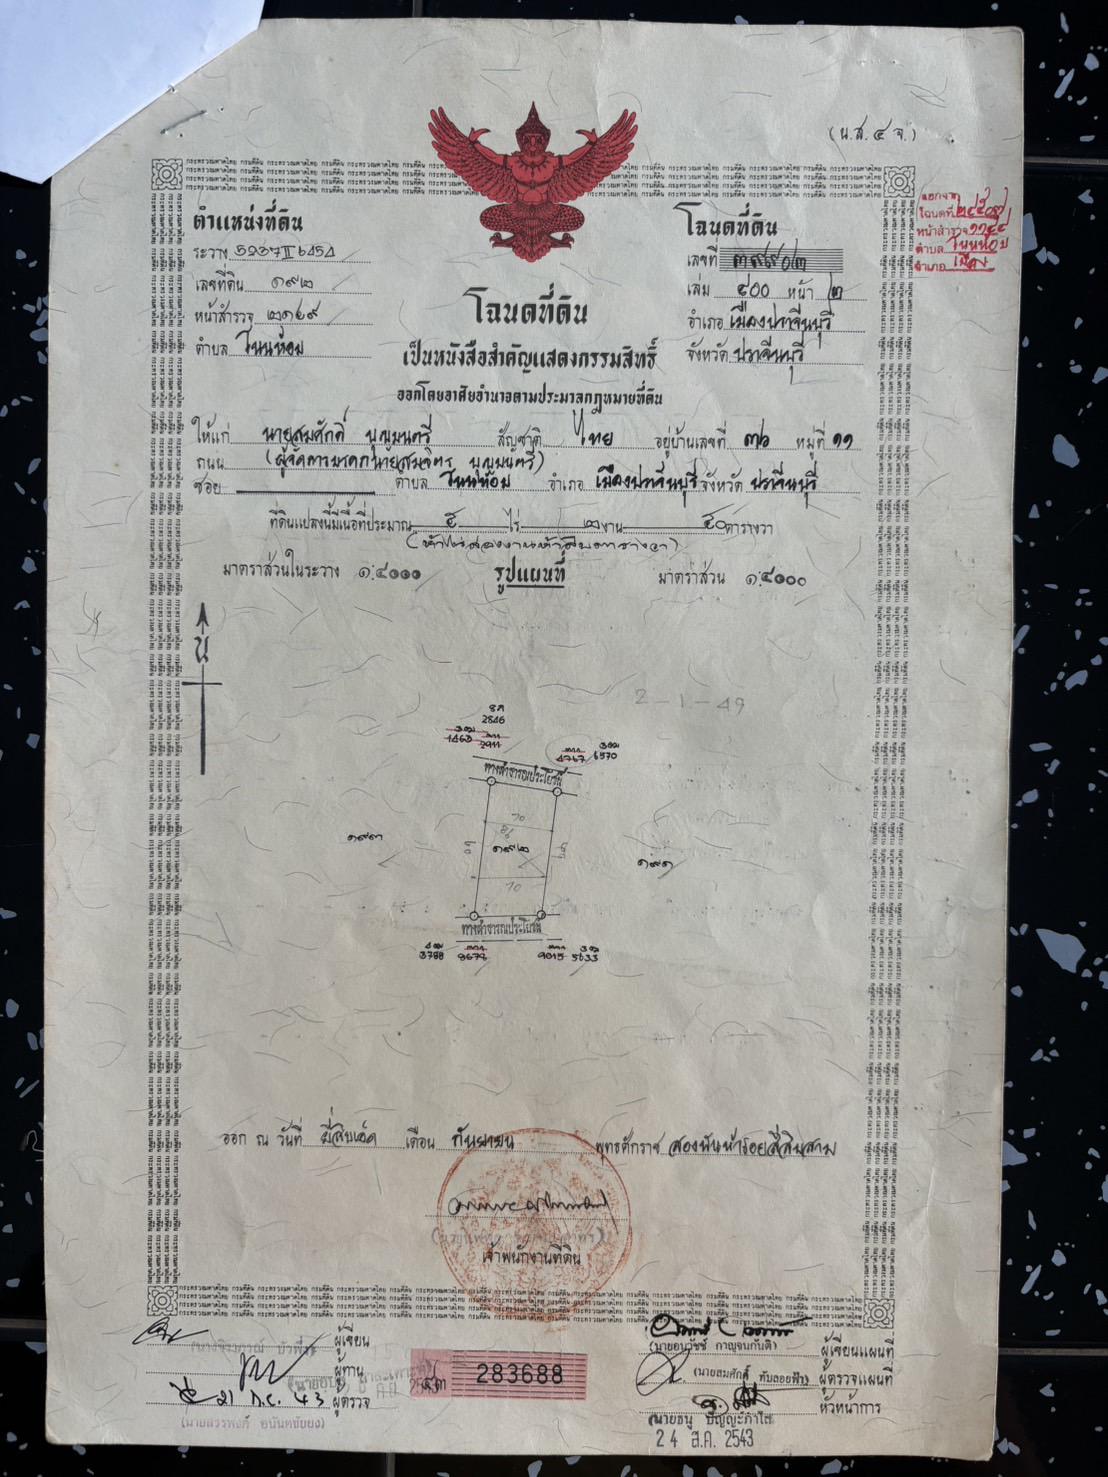 (น.ส. ๔ จ.)
ตำแหน่งที่ดิน
ระวาง 5237 II 6454
เลขที่ดิน ๑๙๒
หน้าสำรวจ ๒๑๔๙
ตำบล โนนห้อม
โฉนดที่ดิน
เลขที่ ๓๙๙๐๒
เล่ม ๔๐๐ หน้า ๒
อำเภอ เมืองปราจีนบุรี
จังหวัด ปราจีนบุรี
แยกจาก
โฉนดที่
หน้าสำรวจ
ตำบล โนนห้อม
อำเภอ เมือง
โฉนดที่ดิน
เป็นหนังสือสำคัญแสดงกรรมสิทธิ์
ออกโดยอาศัยอำนาจตามประมวลกฎหมายที่ดิน
ให้แก่ นายสมศักดิ์ บุญมนตรี สัญชาติ ไทย อยู่บ้านเลขที่ ๓๖ หมู่ที่ ๑๑
ถนน (ผู้จัดการมรดกนายสมจิตร บุญมนตรี)
ซอย ตำบล โนนห้อม อำเภอ เมืองปราจีนบุรี จังหวัด ปราจีนบุรี
ที่ดินแปลงนี้มีเนื้อที่ประมาณ ๕ ไร่ ๒ งาน ๕๐ ตารางวา
(ห้าไร่สองงานห้าสิบตารางวา)
มาตราส่วนในระวาง ๑:๔๐๐๐ รูปแผนที่ มาตราส่วน ๑:๔๐๐๐
น
2-1-49
2846
1463 2911
4767 6570
ทางสาธารณประโยชน์
๑๙๓
๑๙๒
๑๙๑
ทางสาธารณประโยชน์
3788 8672 9015 5633
ออก ณ วันที่ ยี่สิบเอ็ด เดือน กันยายน พุทธศักราช สองพันห้าร้อยสี่สิบสาม
เจ้าพนักงานที่ดิน
ผู้เขียน
ผู้ทาน
21 ก.ย. 43 ผู้ตรวจ
(นายสรรพงศ์ อนันตชัยยง)
283688
(นายอนุวัชช์ กาญจนกันติ) ผู้เขียนแผนที่
(นายสมศักดิ์ ทับลอยฟ้า) ผู้ตรวจแผนที่
หัวหน้าการ
24 ส.ค. 2543